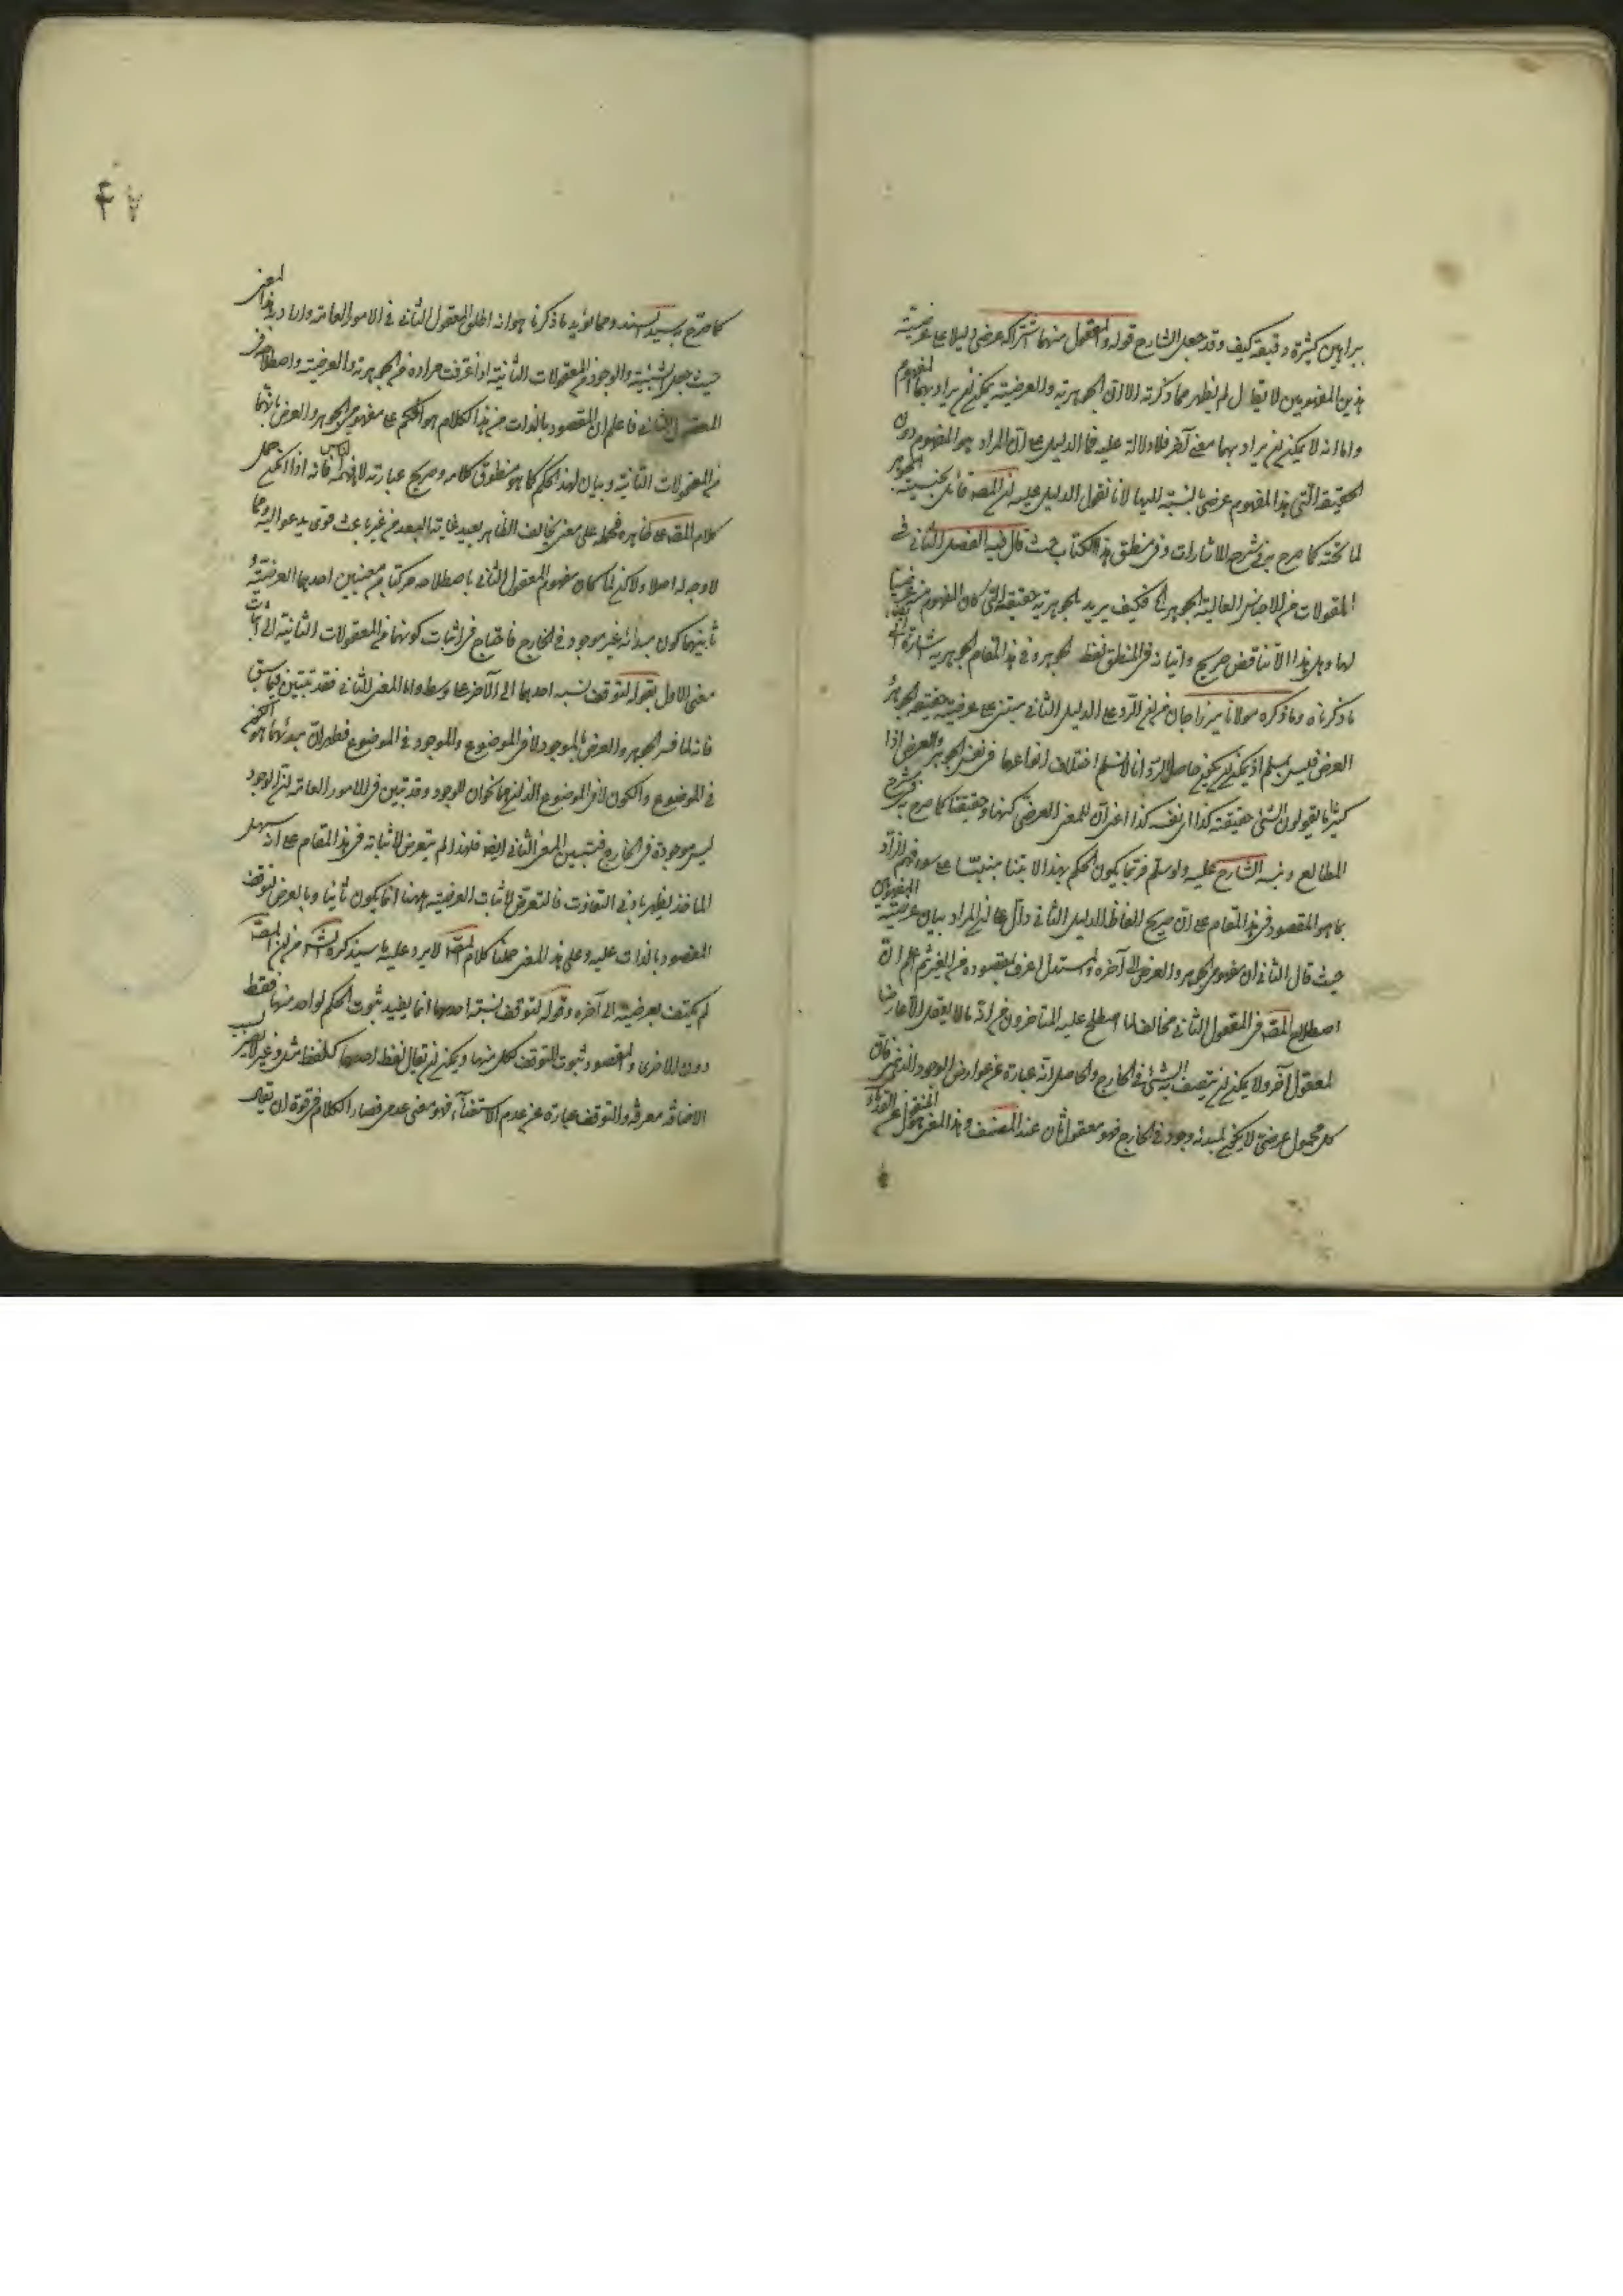 ببراهين كثيرة دقيقة كيف وقد جعل الشارح قوله والمعقول منهما اشتراكه عرضي دليلا على عرضية
هذين المفهومين لا يقال لم يظهر مما ذكرته الا ان الجوهرية والعرضية يمكن ان يراد بهما المفهوم
واما انه لا يمكن ان يراد بهما معنى آخر فلا دلالة عليه فما الدليل على ان المراد هو المفهوم دون
الحقيقة التي هذا المفهوم عرضي بالنسبة اليها لانا نقول الدليل عليه ان المصه قائل بجنسية الجوهر
لما تحته كما صرح به في شرح الاشارات وفي منطق هذا الكتاب حيث قال فيه الفصل الثاني في
المقولات من الاجناس العالية الجوهر الخ فكيف يريد بالجوهرية حقيقته التي كان المفهوم عرضيا
لها وهل هذا الا تناقض صريح واتيانه في المنطق بلفظ الجوهر وفي هذا المقام الجوهرية اشارة الى
ما ذكرناه وما ذكره مولانا ميرزا جان من ان الرد على الدليل الثاني مبتنى على عرضية حقيقة الجوهر
العرض فليس بمسلم اذ يمكن ان يكون حاصل الرد انا لا نسلم اختلاف انواعها في نفس الجوهر والعرض اذا
كثيرا ما يقولون الشئ حقيقته كذا اى نفسه كذا اعنى ان للمعنى العرضي كنها وحقيقة كما صرح به في شرح
المطالع ونبه الشارح عليه ولو سلم فربما يكون الحكم بهذا الابتنا مبنيا على سوء فهم الراد
بما هو المقصود في هذا المقام على ان صريح الفاظ الدليل الثاني دال على ان المراد بيان عرضية المفهومين
حيث قال الثاني ان مفهومى الجوهر والعرض الى آخره والمستدل اعرف بمقصوده من الغير ثم اعلم ان
اصطلاح المصه في المعقول الثاني مخالف لما اصطلح عليه المتأخرون من انه ما لا يعقل الا عارضا
لمعقول آخر ولا يمكن ان يتصف به الشئ في الخارج والحاصل انه عبارة عن عوارض الوجود الذهني فان
كل محمول عرضي لا يكون لمبدئه وجود في الخارج فهو معقول ثان عند المصنف وهذا المعنى منقول عن القدماء
٤٧
كما صرح به سيد السند ومما يؤيد ما ذكرنا هو انه اطلق المعقول الثاني في الامور العامة واراد به هذا المعنى
حيث جعل الشيئية والوجود من المعقولات الثانية اذا عرفت مراده من الجوهرية والعرضية واصطلاحه في
المعقول الثاني فاعلم ان المقصود بالذات من هذا الكلام هو الحكم على مفهومى الجوهر والعرض بانهما
من المعقولات الثانية وبيان لهذا الحكم كما هو منطوق كلامه وصريح عبارته لا ما فهمه الناس فانه اذا امكن حمل
كلام المصه على ظاهره فحمله على معنى يخالف الظاهر بعيد غاية البعد من غير باعث قوى يدعو اليه مما
لا وجه له اصلا ولكن لما كان مفهوم المعقول الثاني باصطلاحه مركبا من معنيين احدهما العرضية و
ثانيهما كون مبدائه غير موجود في الخارج فاحتاج في اثبات كونهما من المعقولات الثانية الى اثبات
معنى الاول بقوله لتوقف نسبة احدهما الى الآخر على وسط واما المعنى الثاني فقد تبين فيما سبق
فانه لما فسر الجوهر والعرض بالموجود لا في الموضوع والموجود في الموضوع فظهر ان مبدئهما هو الكون
في الموضوع والكون لا في الموضوع اللذان هما نحوان للوجود وقد تبين في الامور العامة ان الوجود
ليس موجودة في الخارج فتبين المعنى الثاني ايضا فلهذا لم يتعرض لاثباته في هذا المقام على انه سهل
المأخذ يظهر بادنى التفاوت فالتعرض لاثبات العرضية ههنا انما يكون ثانيا وبالعرض لتوقف
المقصود بالذات عليه وعلى هذا المعنى حملنا كلام المصه لا يرد عليه ما سيذكره الشه من ان المصه
لم يكتف بعرضيته الى آخره وقوله لتوقف نسبة احدهما انما يفيد ثبوت الحكم لواحد منهما فقط
دون الاخرى والمقصود ثبوت التوقف لكل منهما ويمكن ان يقال لفظ احدهما كلفظ مثل وغير لا يصير بسبب
الاضافة معرفة والتوقف عبارة عن عدم الاستغناء فهو معنى عدمى فصار الكلام في قوة ان يقال